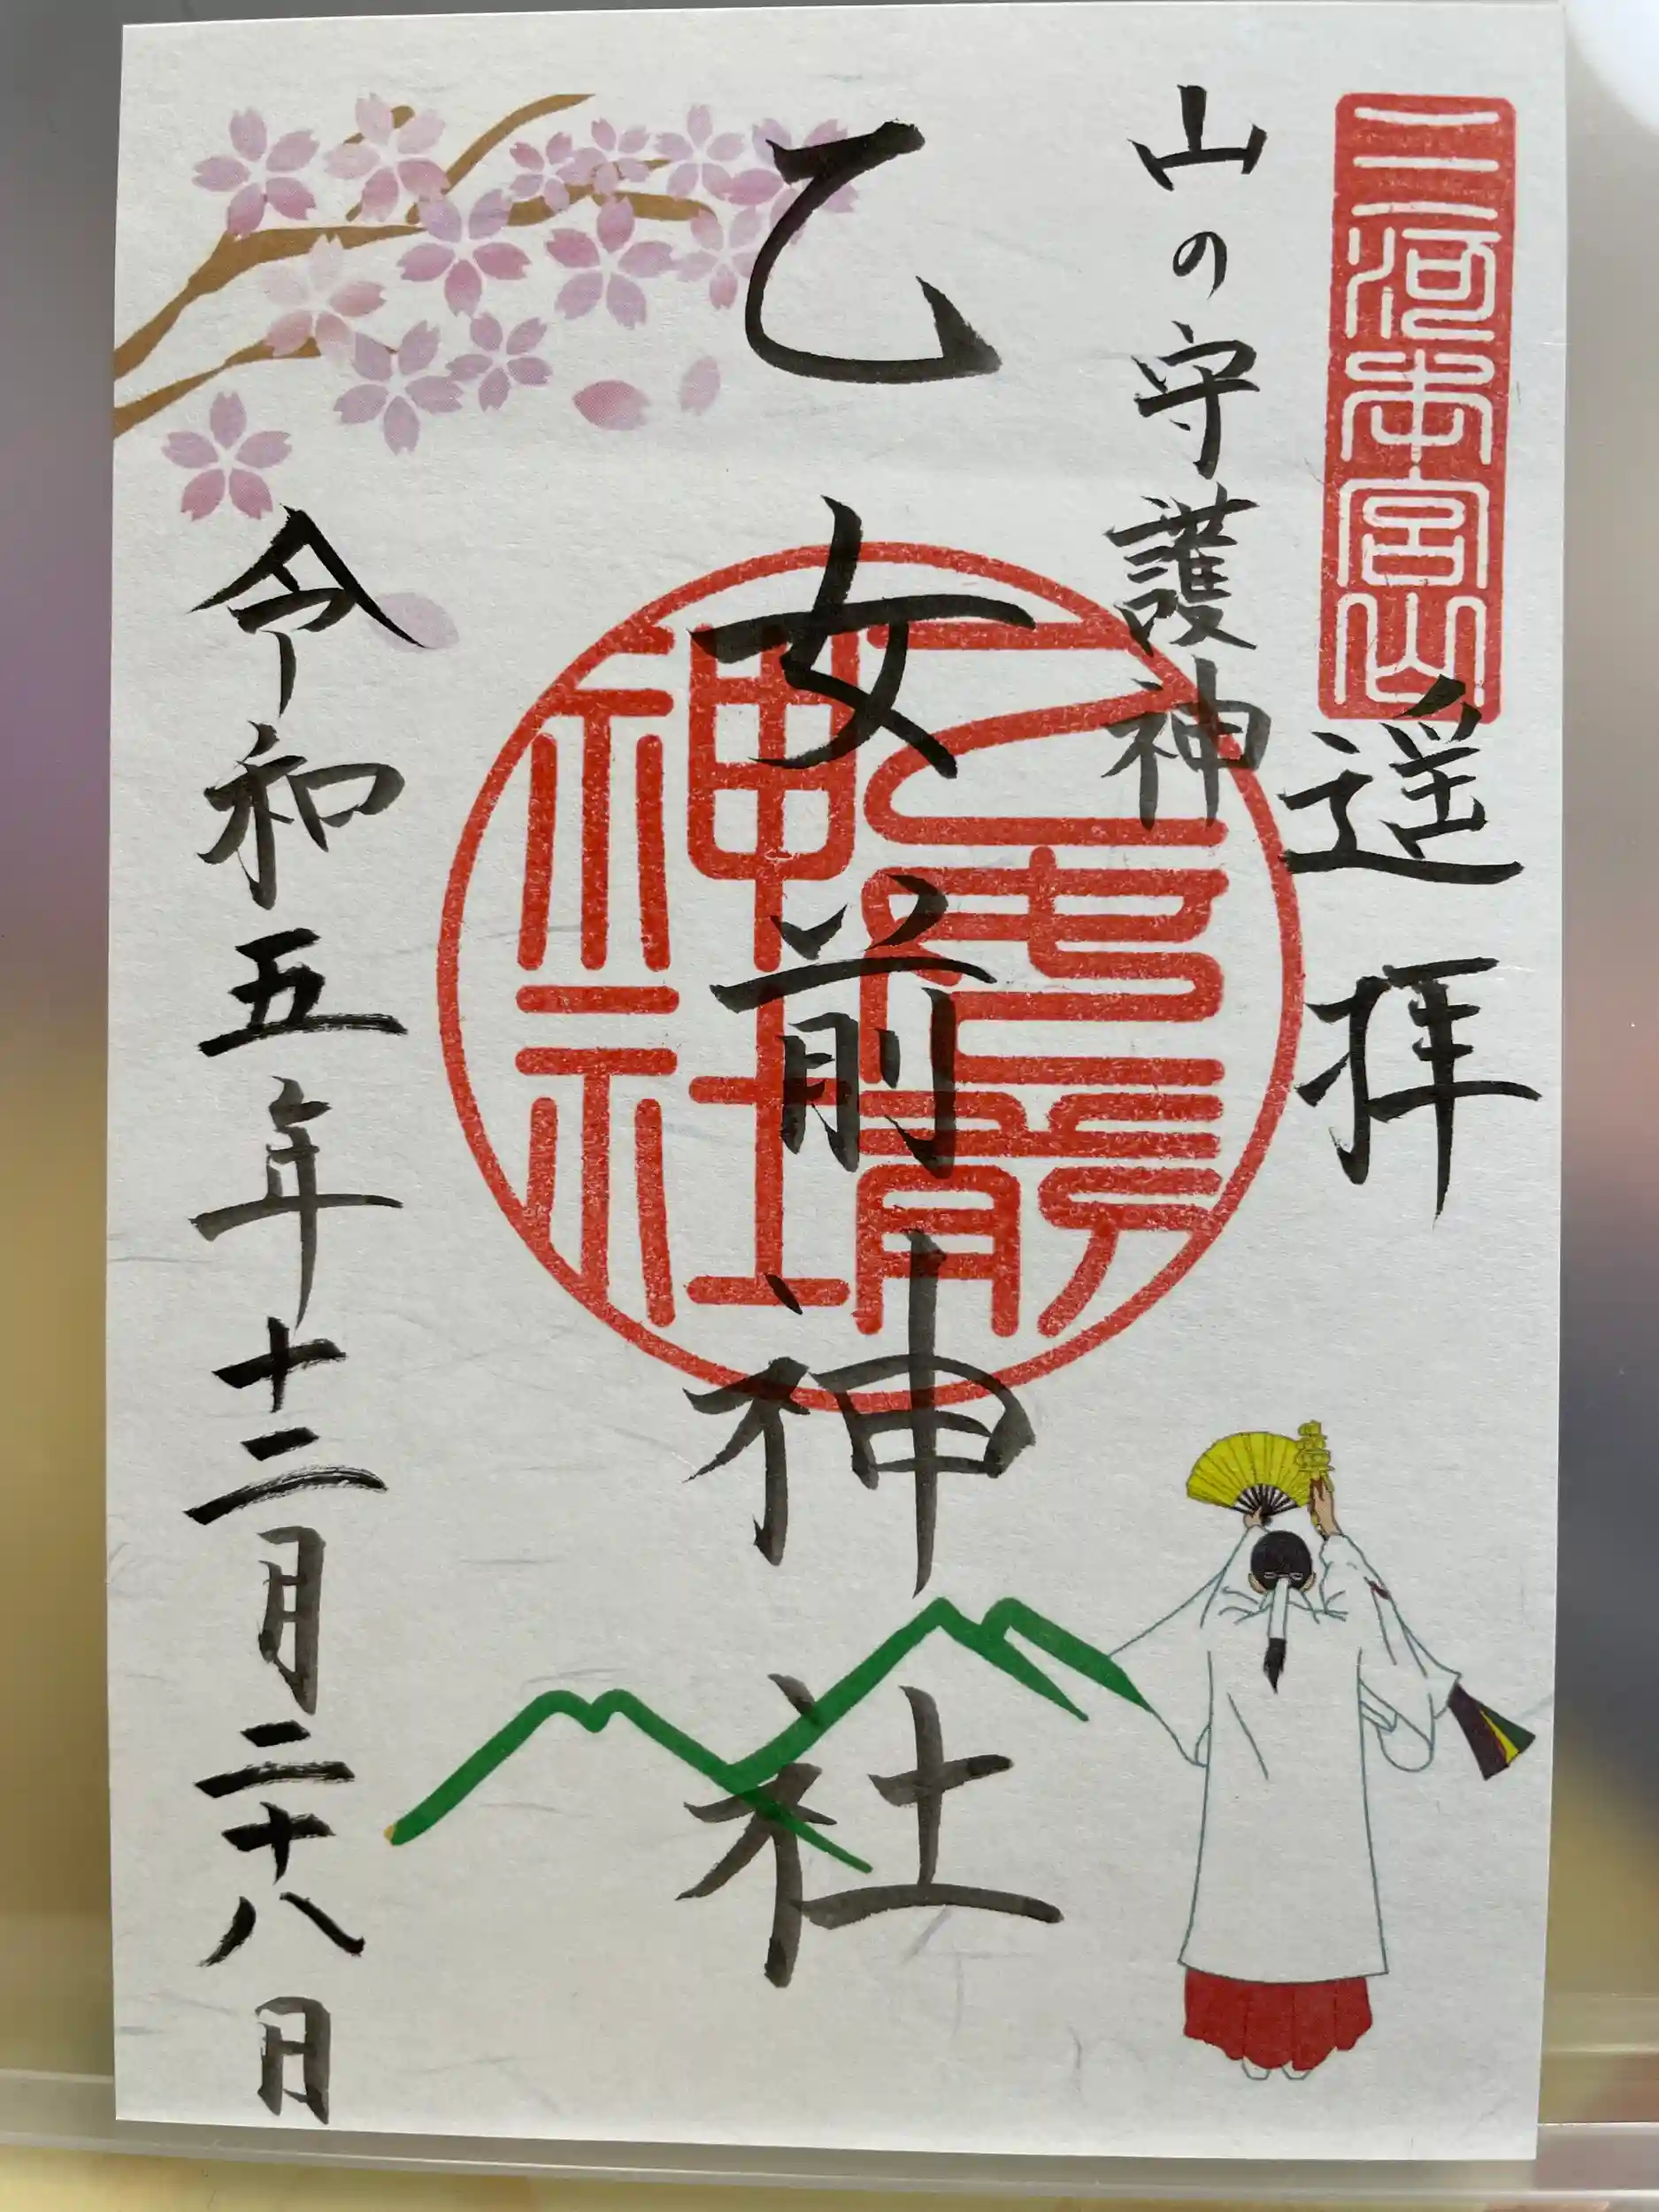 三河本宮山
遥拝
山の守護神
乙女前神社
乙女前神社
令和五年十二月二十八日